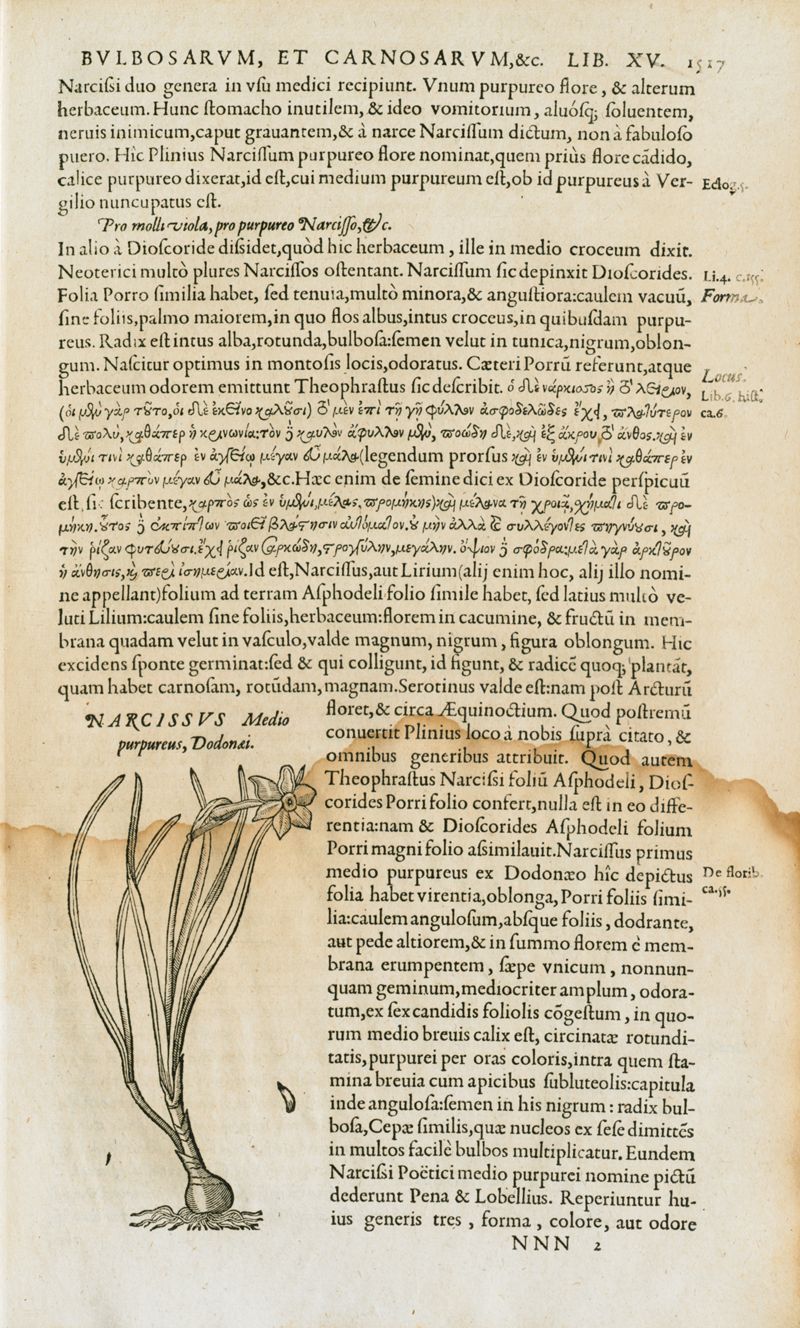 BVLBOSARVM, ET CARNOSARVM,&c. LIB. XV. 1517
Narciſsi duo genera in vſu medici recipiunt. Vnum purpureo flore, & alterum
herbaceum. Hunc ſtomacho inutilem, & ideo vomitorium, aluóſq; ſoluentem,
neruis inimicum, caput grauantem, & à narce Narciſſum dictum, non à fabuloſo
puero. Hîc Plinius Narciſſum purpureo flore nominat, quem priùs flore cãdido,
calice purpureo dixerat, id eſt, cui medium purpureum eſt, ob id purpureus à Ver-
Eclog.
gilio nuncupatus eſt.
Pro molli viola, pro purpureo Narciſſo, &c.
In alio à Dioſcoride diſsidet, quòd hic herbaceum, ille in medio croceum dixit.
Neoterici multò plures Narciſſos oſtentant. Narciſſum ſic depinxit Dioſcorides.
Li.4.
Folia Porro ſimilia habet, ſed tenuia, multò minora, & anguſtiora: caulem vacuũ,
Forma.
ſine foliis, palmo maiorem, in quo flos albus, intus croceus, in quibuſdam purpu-
reus. Radix eſt intus alba, rotunda, bulboſa: ſemen velut in tunica, nigrum, oblon-
gum. Naſcitur optimus in montoſis locis, odoratus. Cæteri Porrũ referunt, atque
Locus.
herbaceum odorem emittunt Theophraſtus ſic deſcribit. ὁ δὲ νάρκισσος ἢ τὸ λείριον,
Lib.6. hiſt.
(οἱ μὲν γὰρ τοῦτο, οἱ δὲ ἐκεῖνο καλοῦσι) τὸ μὲν ἐπὶ τῇ γῇ φύλλον ἀσφοδελῶδες ἔχει, πλατύτερον
ca.6.
δὲ πολὺ, καθάπερ ἡ κρινωνία: τὸν δὲ καυλὸν ἄφυλλον μὲν, ποώδη δὲ, καὶ ἐξ ἄκρου τὸ ἄνθος. καὶ ἐν
ὑμένι τινὶ καθάπερ ἐν ἀγγείῳ μέγαν εὖ μάλα, (legendum prorſus καὶ ἐν ὑμένι τινὶ καθάπερ ἐν
ἀγγείῳ καρπὸν μέγαν εὖ μάλα, &c. Hæc enim de ſemine dici ex Dioſcoride perſpicuũ
eſt, ſic ſcribente, καρπὸς ὡς ἐν ὑμένι, μέλας, προμήκης) καὶ μέλανα τῇ χροιᾷ, σχήματι δὲ προ-
μήκη. οὗτος δὲ ἐκπίπτων ποιεῖ βλάστησιν αὐτόματον. οὐ μὴν ἀλλὰ καὶ συλλέγοντες πηγνύουσι, καὶ
τὴν ῥίζαν φυτεύουσι. ἔχει ῥίζαν σαρκώδη, στρογγύλην, μεγάλην. ὄψιον δὲ σφόδρα: μετὰ γὰρ ἀρκτοῦρον
ἡ ἄνθησις, καὶ περὶ ἰσημερίαν. Id eſt, Narciſſus, aut Lirium (alij enim hoc, alij illo nomi-
ne appellant) folium ad terram Aſphodeli folio ſimile habet, ſed latius multò ve-
luti Lilium: caulem ſine foliis, herbaceum: florem in cacumine, & fructũ in mem-
brana quadam velut in vaſculo, valde magnum, nigrum, figura oblongum. Hic
excidens ſponte germinat: ſed & qui colligunt, id figunt, & radicẽ quoq; plantãt,
quam habet carnoſam, rotũdam, magnam. Serotinus valde eſt: nam poſt Arcturũ
NARCISSVS Medio
purpureus, Dodonæi.
floret, & circa Æquinoctium. Quod poſtremũ
conuertit Plinius loco à nobis ſuprà citato, &
omnibus generibus attribuit. Quod autem
Theophraſtus Narciſsi foliũ Aſphodeli, Dioſ-
corides Porri folio confert, nulla eſt in eo diffe-
rentia: nam & Dioſcorides Aſphodeli folium
Porri magni folio aſsimilauit. Narciſſus primus
medio purpureus ex Dodonæo hîc depictus
De florib.
folia habet virentia, oblonga, Porri foliis ſimi-
lia: caulem anguloſum, abſque foliis, dodrante,
aut pede altiorem, & in ſummo florem è mem-
brana erumpentem, ſæpe vnicum, nonnun-
quam geminum, mediocriter amplum, odora-
tum, ex ſex candidis foliolis cõgeſtum, in quo-
rum medio breuis calix eſt, circinatæ rotundi-
tatis, purpurei per oras coloris, intra quem ſta-
mina breuia cum apicibus ſubluteolis: capitula
inde anguloſa: ſemen in his nigrum: radix bul-
boſa, Cepæ ſimilis, quæ nucleos ex ſeſe dimittẽs
in multos facilè bulbos multiplicatur. Eundem
Narciſsi Poëtici medio purpurei nomine pictũ
dederunt Pena & Lobellius. Reperiuntur hu-
ius generis tres, forma, colore, aut odore
NNN 2